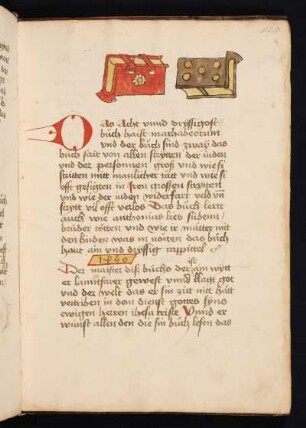 Das Acht vnnd dryssigost
buch haist machabeorum
vnd der buch sind zway das
buch sait von allen strytten der iuden
vnd der personnen groß vnd wie si
striten mitt manlicher tätt vnd wie si
offt gesigten in iren grossen stryten
vnd wie der iuden widersacher
strytt vil offt verlos Das buch lert
auch wie anthonius lies süben
brüder tötten vnd wie ir mutter mit
den kinden was in nöiten das buch
haut ain vnd dryssig cappitel
1460
Der maister diß buchs der
er lantfarer gewest vnnd klagt got
vnd der welt das er sin zitt nitt hätt
vertriben in dem dienst gottes syns
ewigen herren ihesu criste Vnnd er
wünst allen den die sin buch lesen das